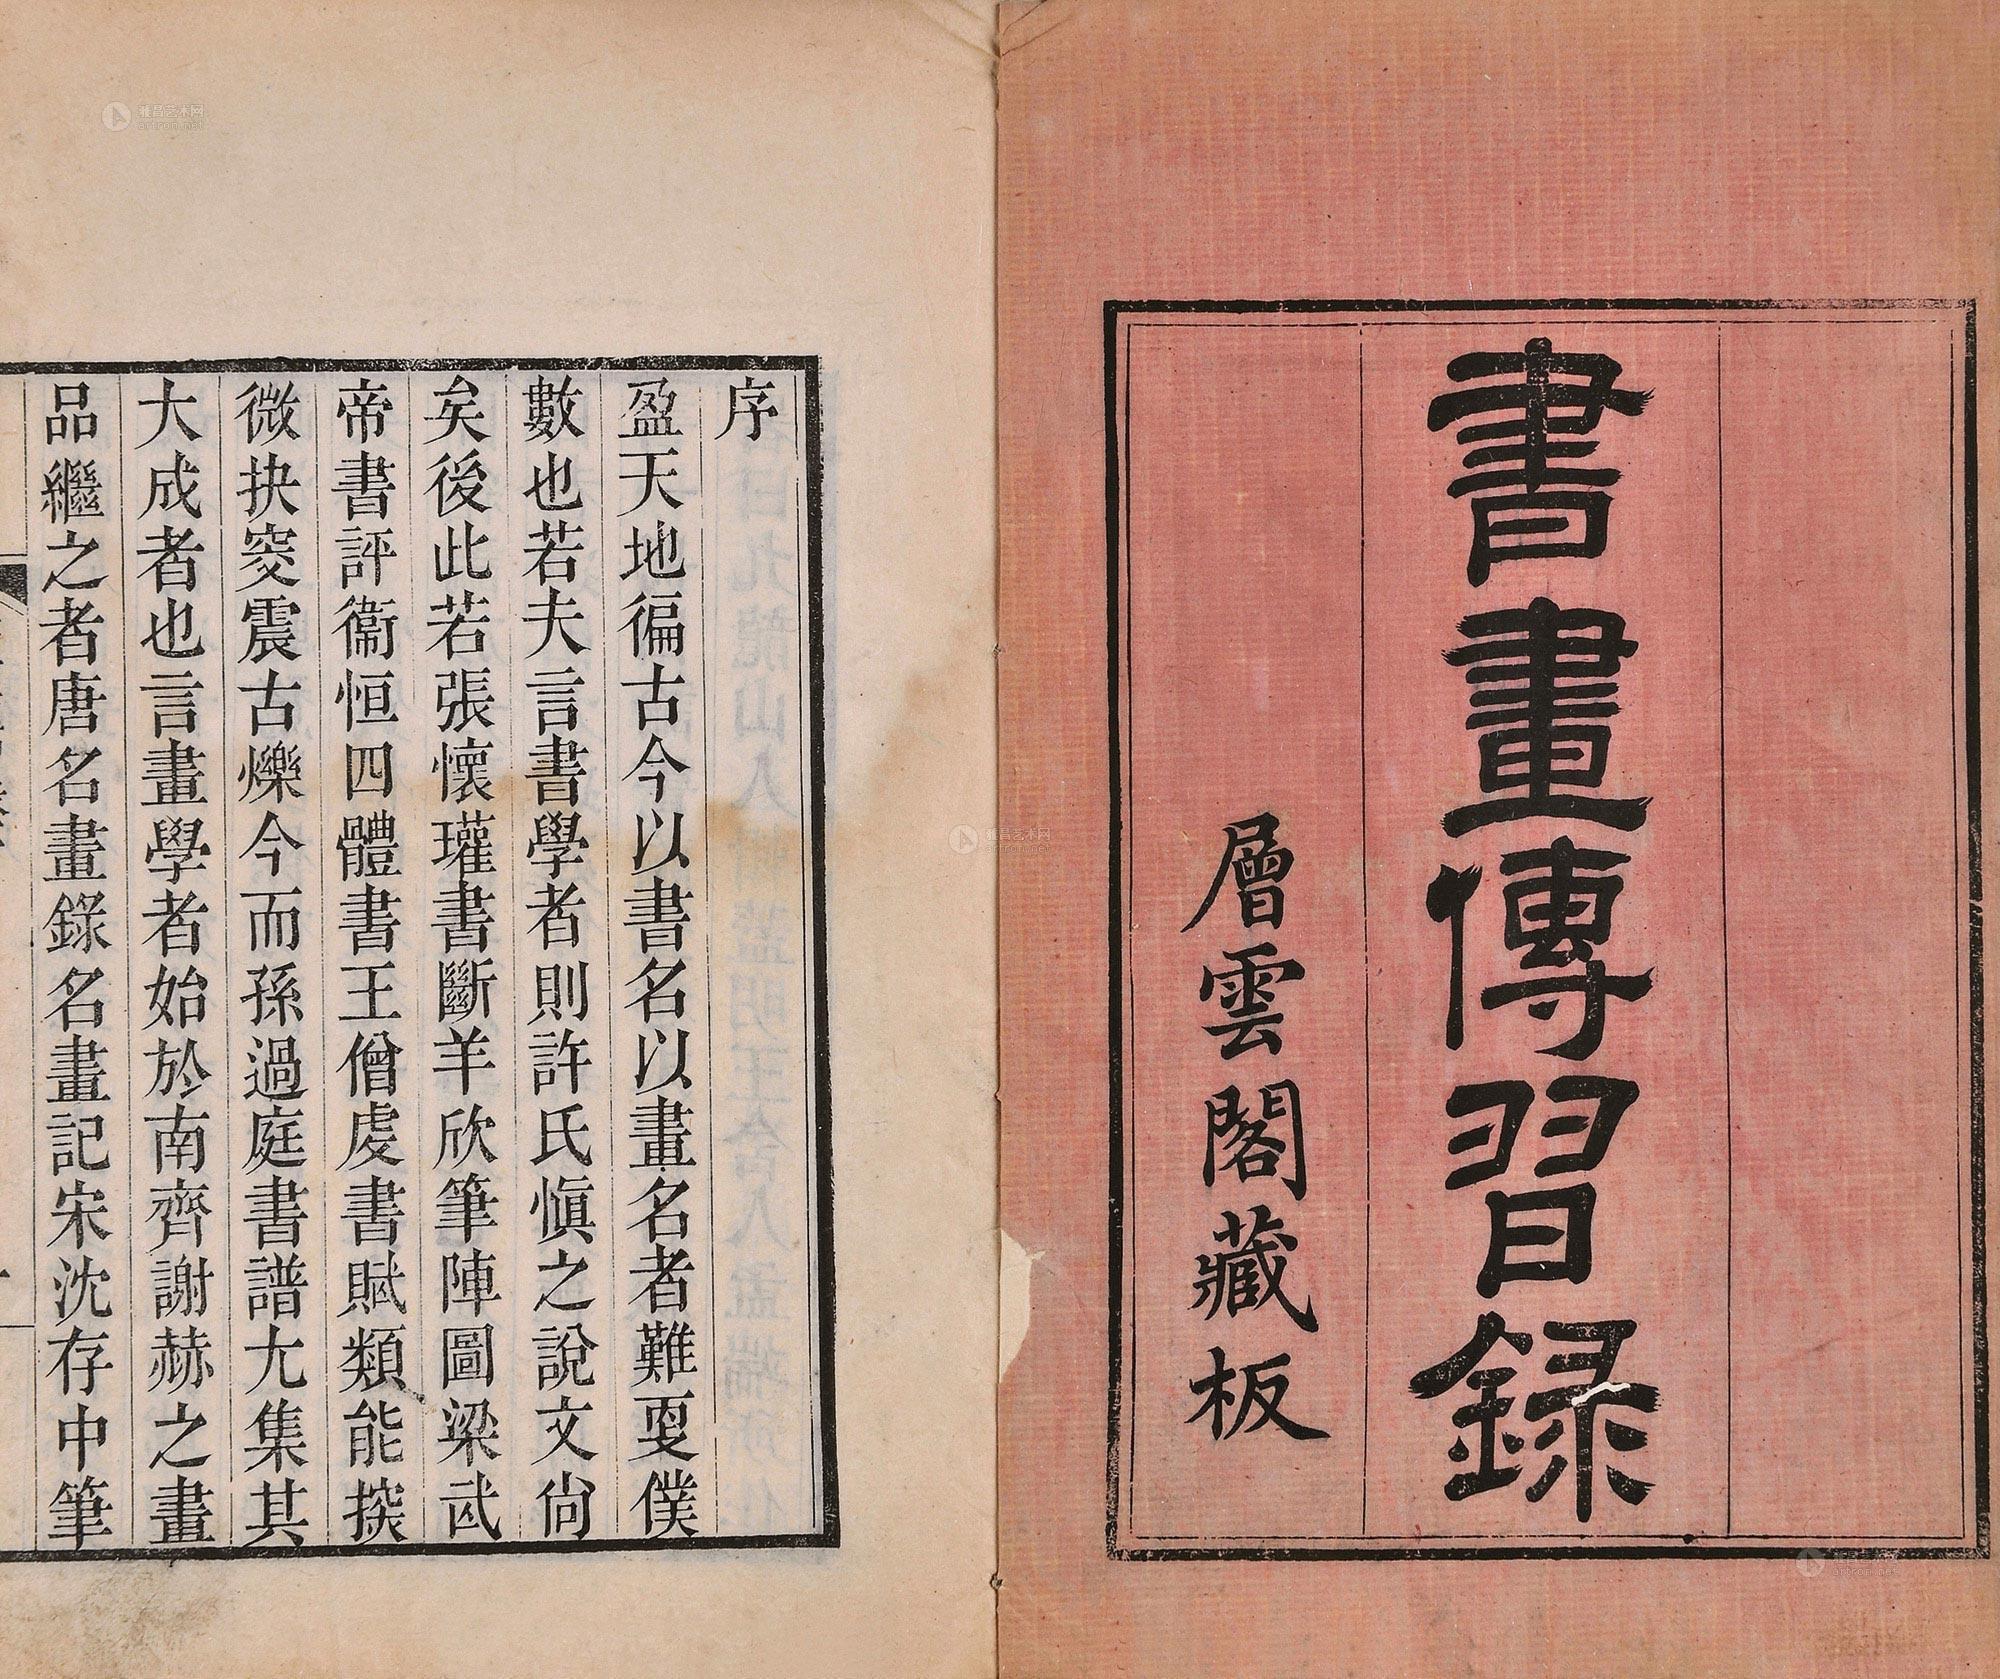 書畫傳習録
層雲閣藏板
序
盈天地徧古今以書名以畫名者難更僕
數也若夫言書學者則許氏愼之說文尙
矣後此若張懷瓘書斷羊欣筆陣圖梁武
帝書評衞恒四體書王僧虔書賦類能探
微抉窔震古爍今而孫過庭書譜尢集其
大成者也言畫學者始於南齊謝赫之畫
品繼之者唐名畫錄名畫記宋沈存中筆
雅昌艺术网
artron.net
雅昌艺术网
artron.net
雅昌艺术网
artron.net